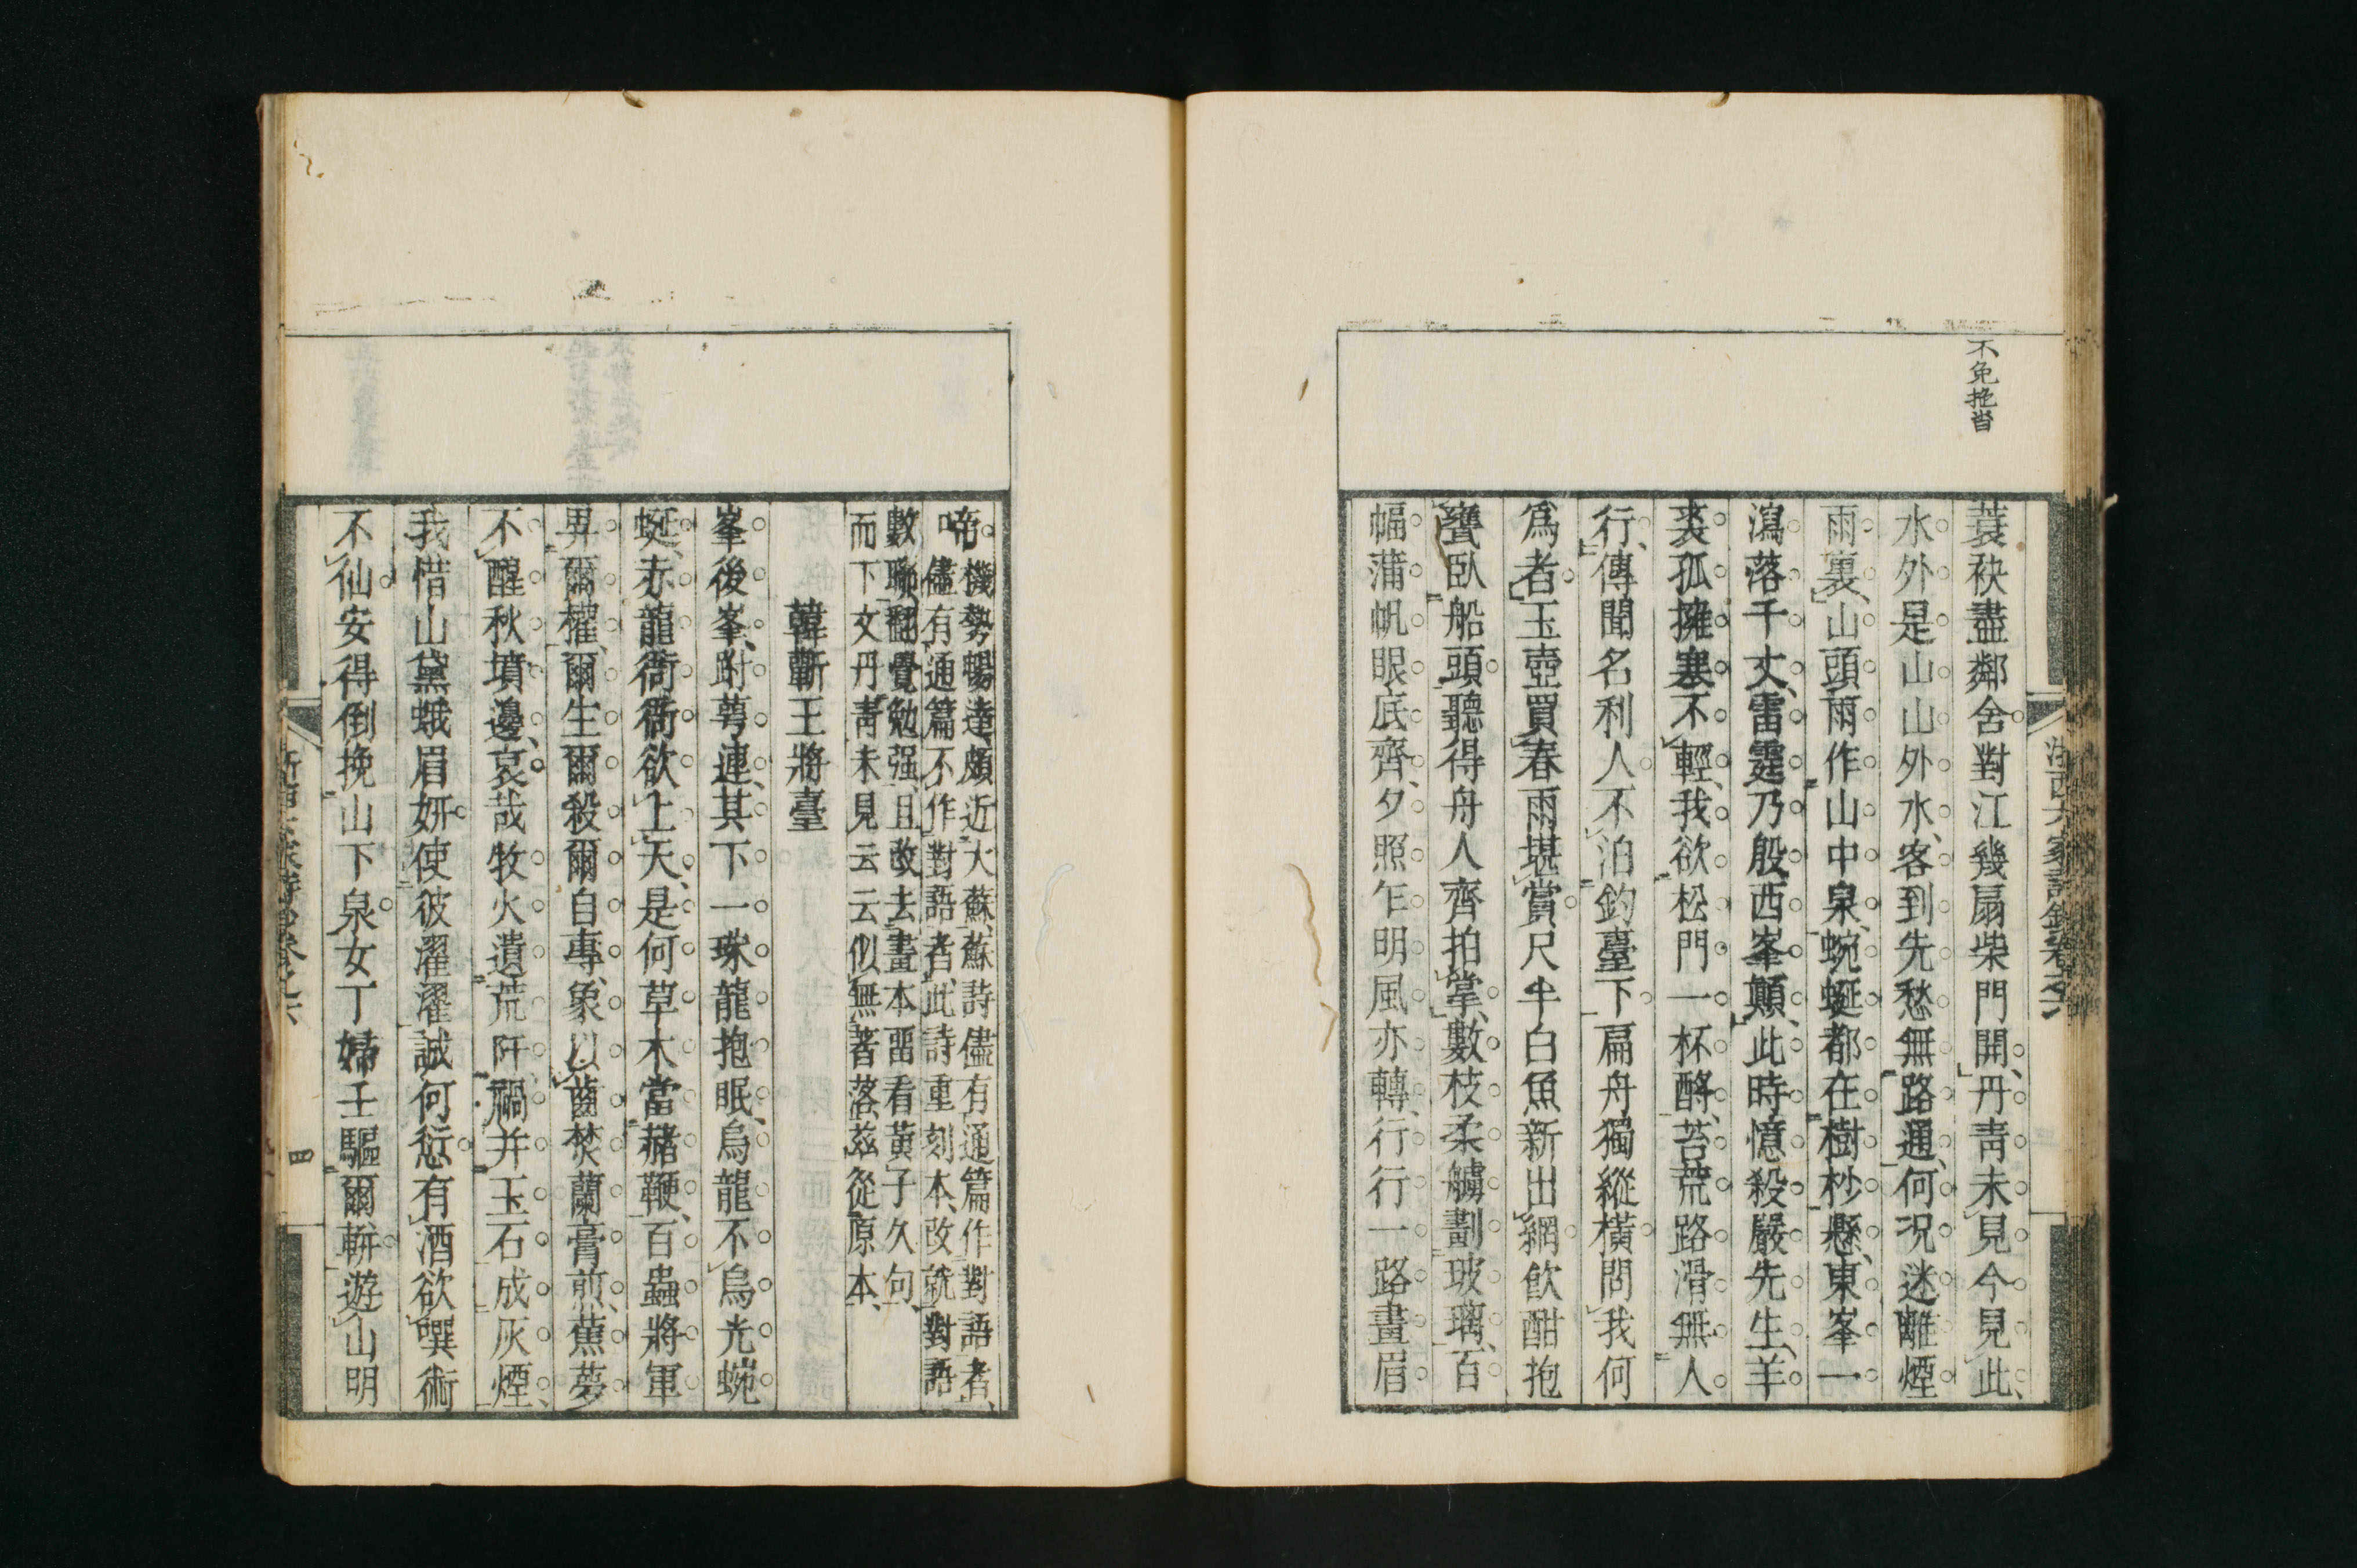 不免挽晳
蓑袂盡鄰舍對江幾扇柴門開、丹青未見今見此、
水外是山山外水、客到先愁無路通、何況迷離煙
雨裏、山頭雨作山中泉、蜿蜒都在樹杪懸、東峯一
瀉落千丈、雷霆乃殷西峯顚、此時憶殺嚴先生、羊
裘孤擁塞不輕、我欲松門一杯酹、苔荒路滑無人
行、傳聞名利人不泊釣臺下扁舟獨縱橫問我何
爲者、玉壺買春雨堪賞、尺半白魚新出網飮酣抱
甕臥船頭聽得舟人齊拍掌、數枝柔艣劃玻璃、百
幅蒲帆眼底齊、夕照乍明風亦轉、行行一路畫眉
浙西六家詩鈔卷之六
啼。
機勢暢達、頗近大蘇、蘇詩儘有通篇作對語者、
儘有通篇不作對語者、此詩重刻本、改就對語
數聯、翻覺勉强、且改去畫本畱看黃子久句、
而下文丹青未見云云似無著落、茲從原本、
韓蘄王將臺
峯後峯、跗萼連、其下一珠龍抱眠、烏龍不烏光蜿
蜒、赤龍衙衙欲上天、是何草木當赭鞭、百蟲將軍
畀爾權、爾生爾殺爾自專、象以齒焚蘭膏煎、蕉夢
不醒秋墳邊、哀哉牧火遺荒阡禍并玉石成灰煙、
我惜山黛蛾眉妍使彼濯濯誠何愆有酒欲噀術
不仙安得倒挽山下泉女丁婦壬驅爾輧遊山明
浙西六家詩鈔卷之六
四